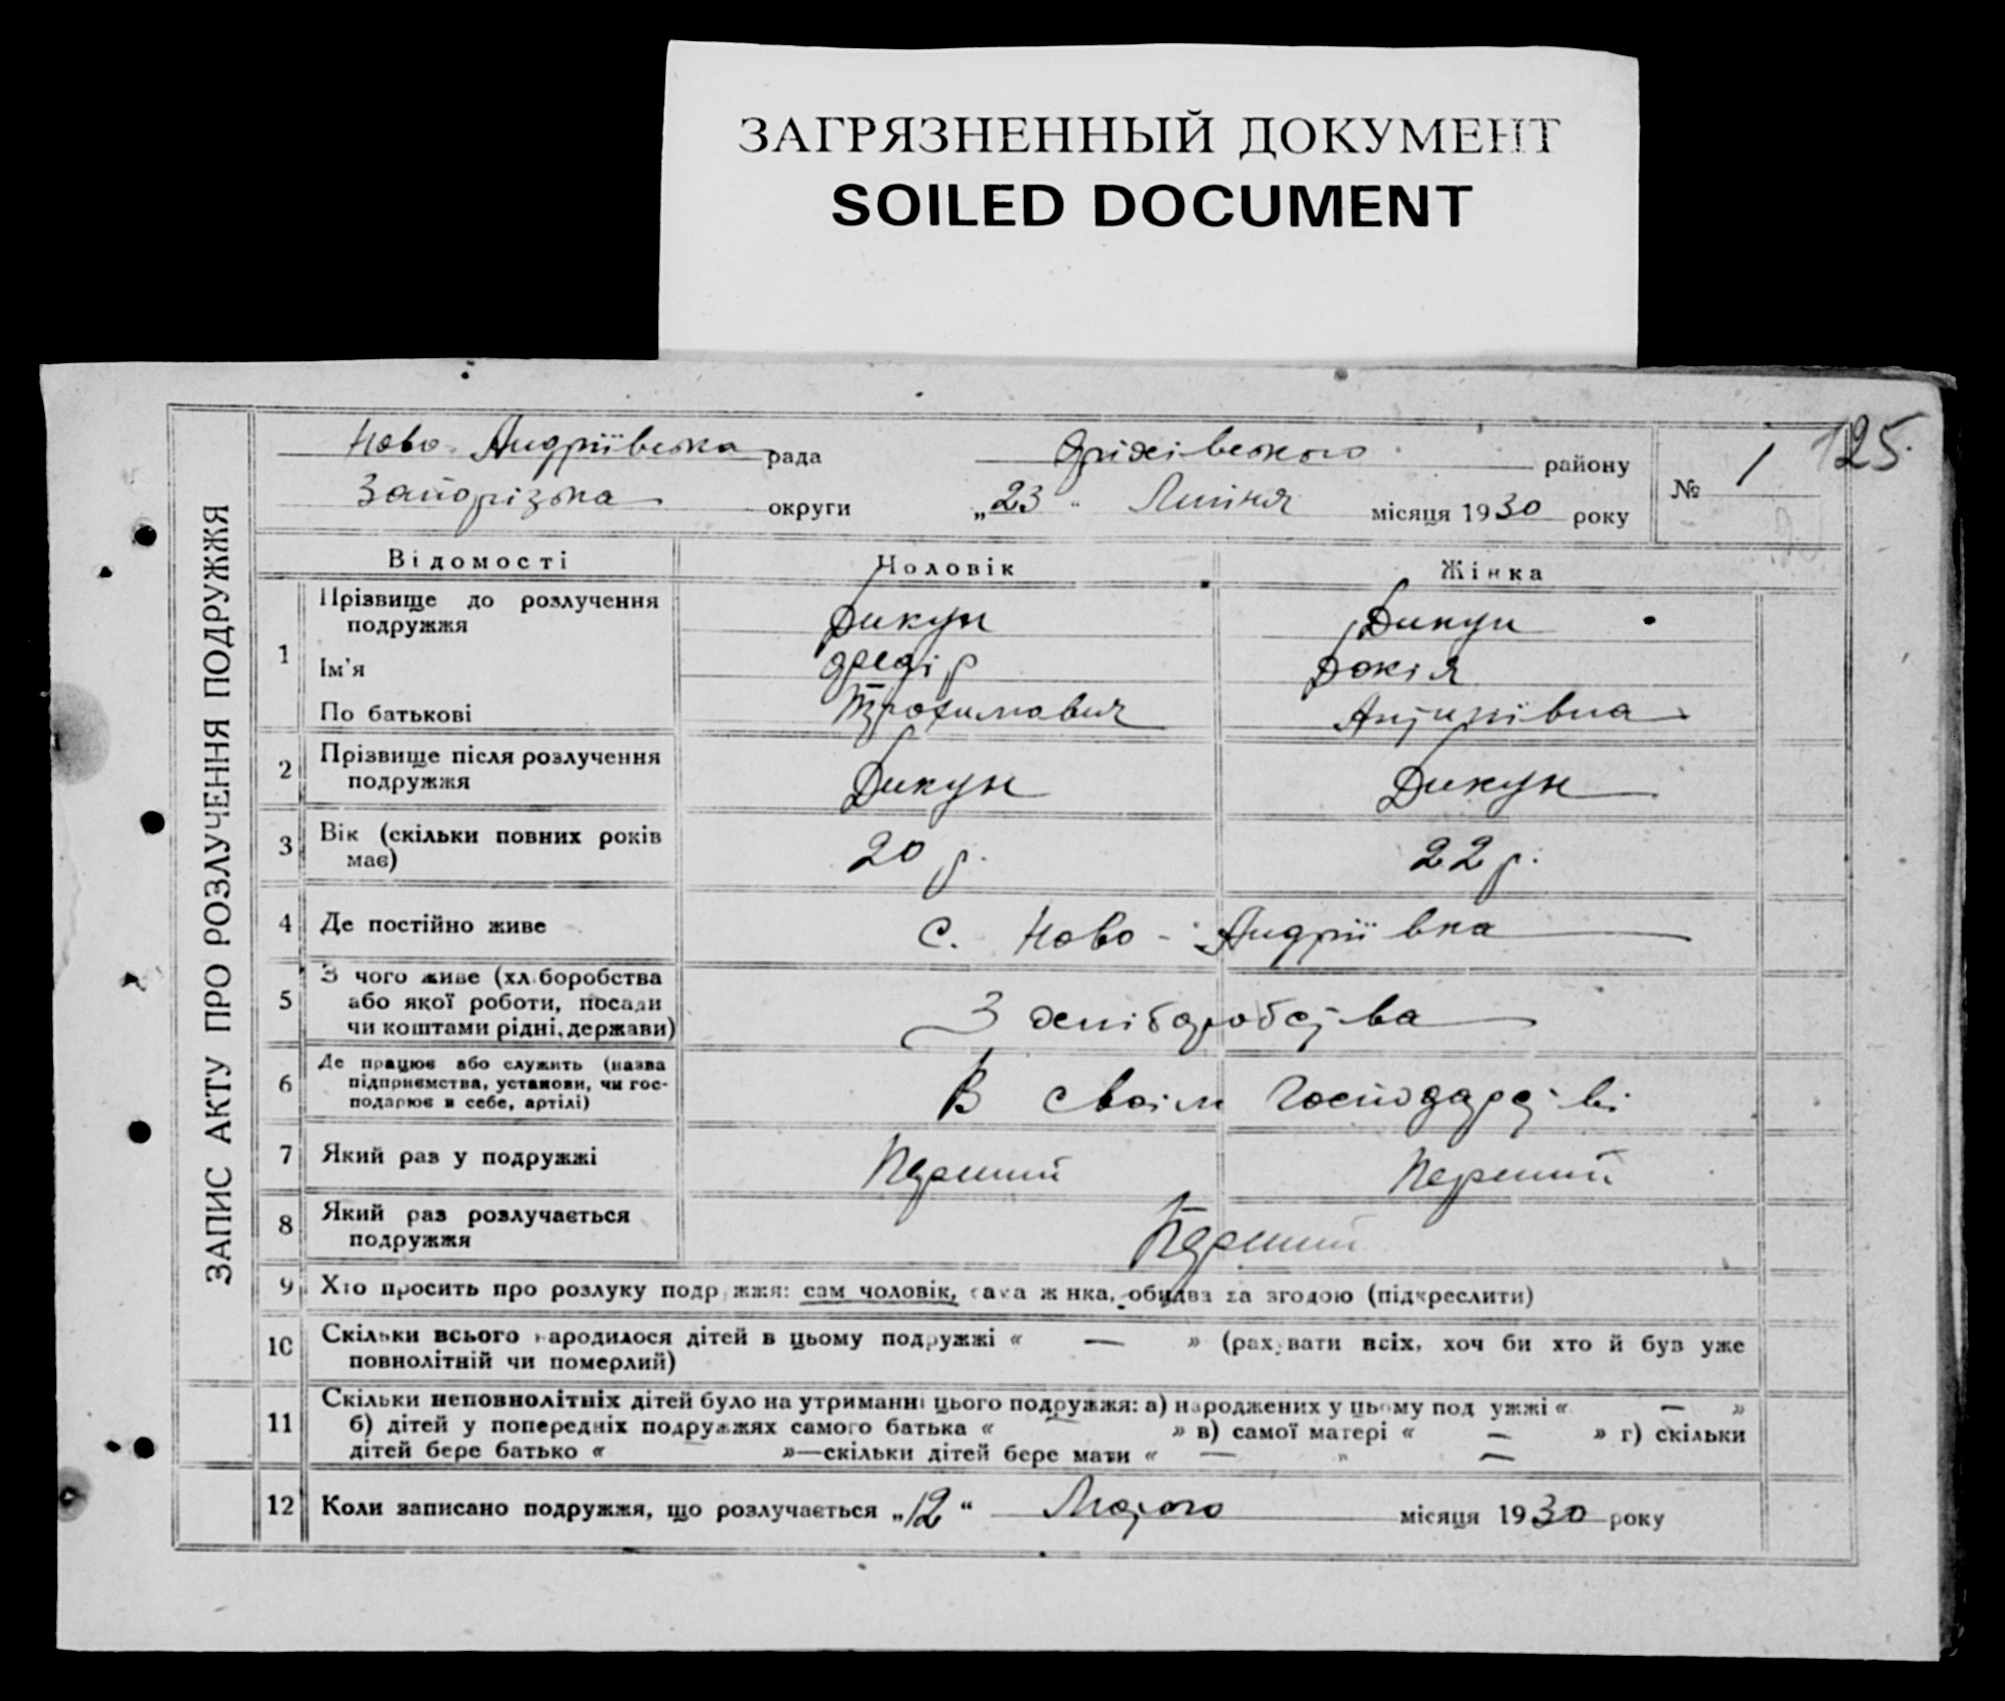 ЗАГРЯЗНЕННЫЙ ДОКУМЕНТ
SOILED DOCUMENT
125.
ЗАПИС АКТУ ПРО РОЗЛУЧЕННЯ ПОДРУЖЖЯ
Ново-Андріївська рада Оріхівського району № 1
Запорізька округи „23“ Липня місяця 1930 року
Відомості Чоловік Жінка
1 Прізвище до розлучення подружжя Дикун Дикун
Ім'я Федір Докія
По батькові Трохимович
2 Прізвище після розлучення
подружжя Дикун Дикун
3 Вік (скільки повних років
має) 20 р. 22 р.
4 Де постійно живе с. Ново-Андріївка
5 З чого живе (хліборобства
або якої роботи, посади
чи коштами рідні, держави) З хліборобства
6 Де працює або служить (назва
підприємства, установи, чи гос-
подарює в себе, артілі) В своїм господарстві
7 Який раз у подружжі Перший Перший
8 Який раз розлучається
подружжя Перший
9 Хто просить про розлуку подружжя: сам чоловік, сама жінка, обидва за згодою (підкреслити)
10 Скільки всього народилося дітей в цьому подружжі « — » (рахувати всіх, хоч би хто й був уже
повнолітній чи померлий)
11 Скільки неповнолітніх дітей було на утриманні цього подружжя: а) народжених у цьому подружжі « — »
б) дітей у попередніх подружжях самого батька « — » в) самої матері « — » г) скільки
дітей бере батько « — »—скільки дітей бере мати « — »
12 Коли записано подружжя, що розлучається „12“ Лютого місяця 1930 року